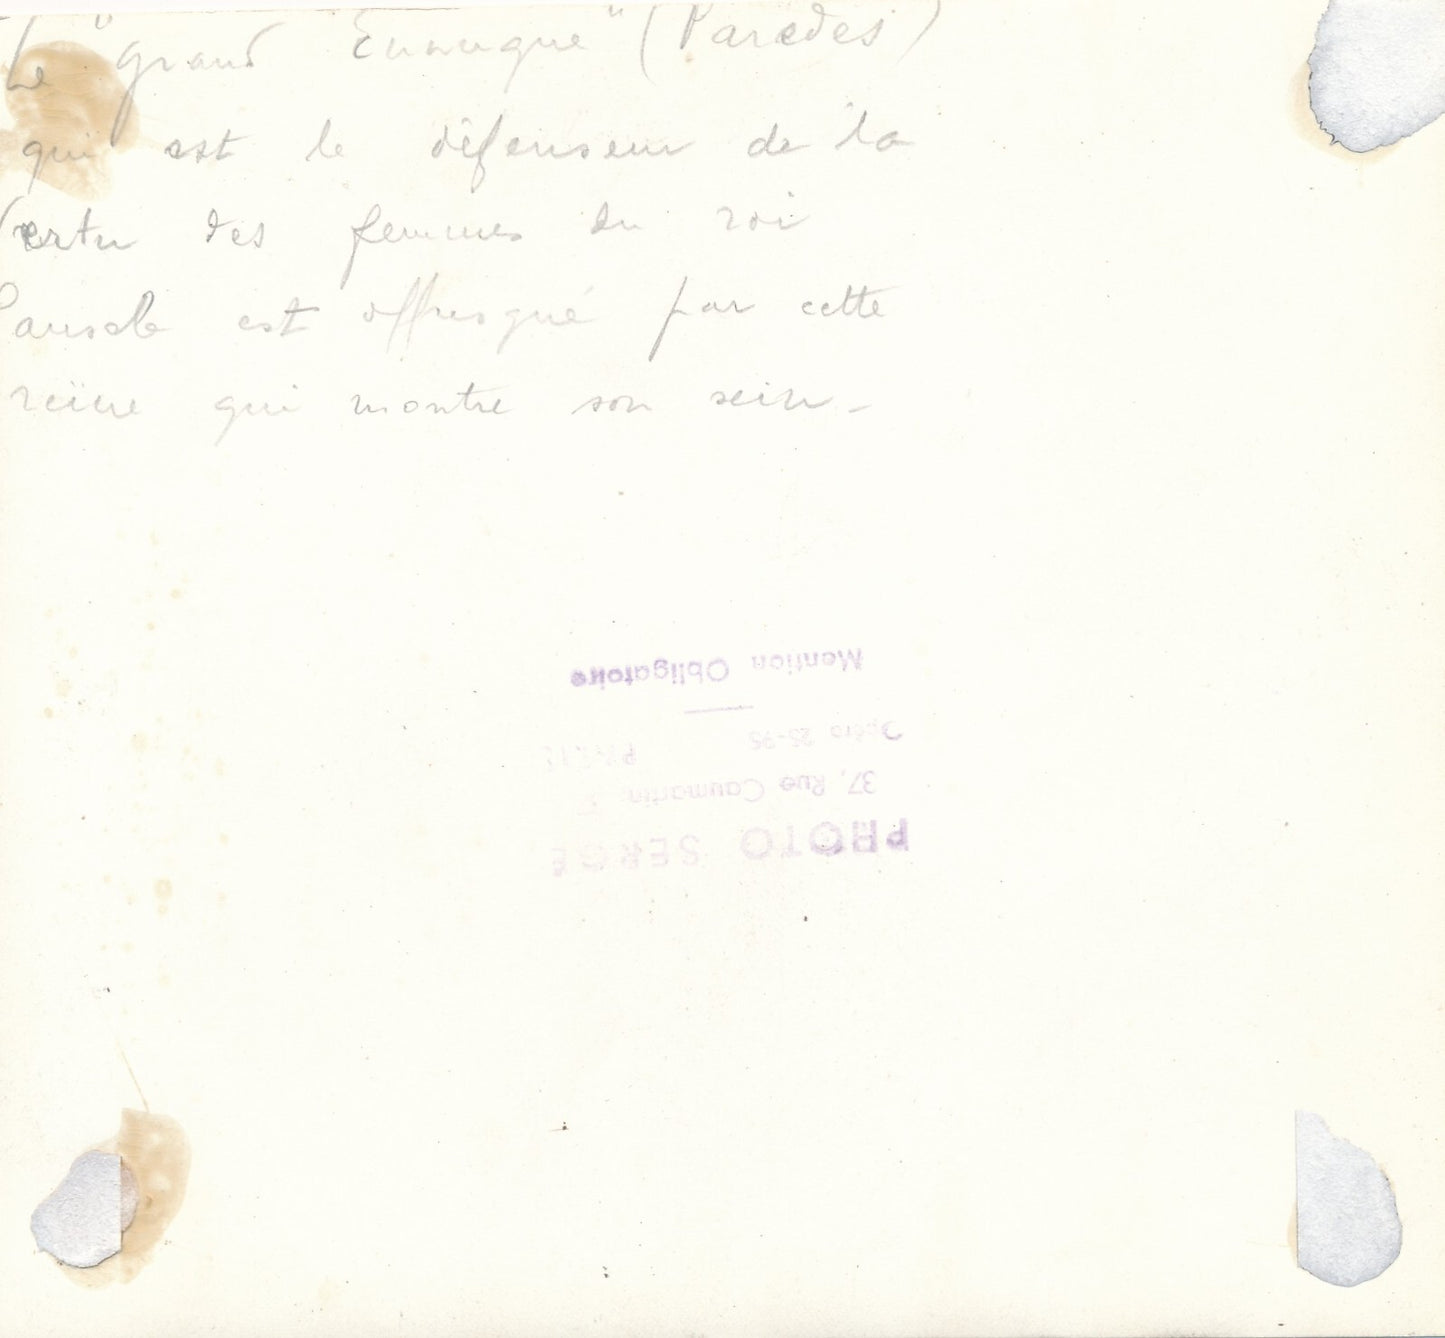 Le "grand Eunuque" (Paredès)
qui est le défenseur de la
Vertu des femmes du roi
Pausole est offusqué par cette
reïne qui montre son sein -
Mention Obligatoire
Opéra 25-95
37, Rue Caumartin
PHOTO SERGE